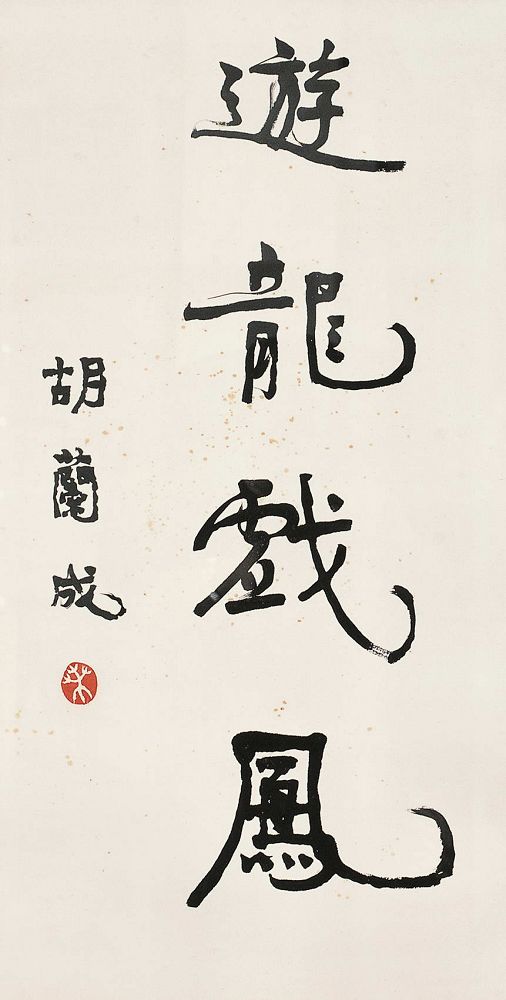 遊龍戲鳳
胡蘭成